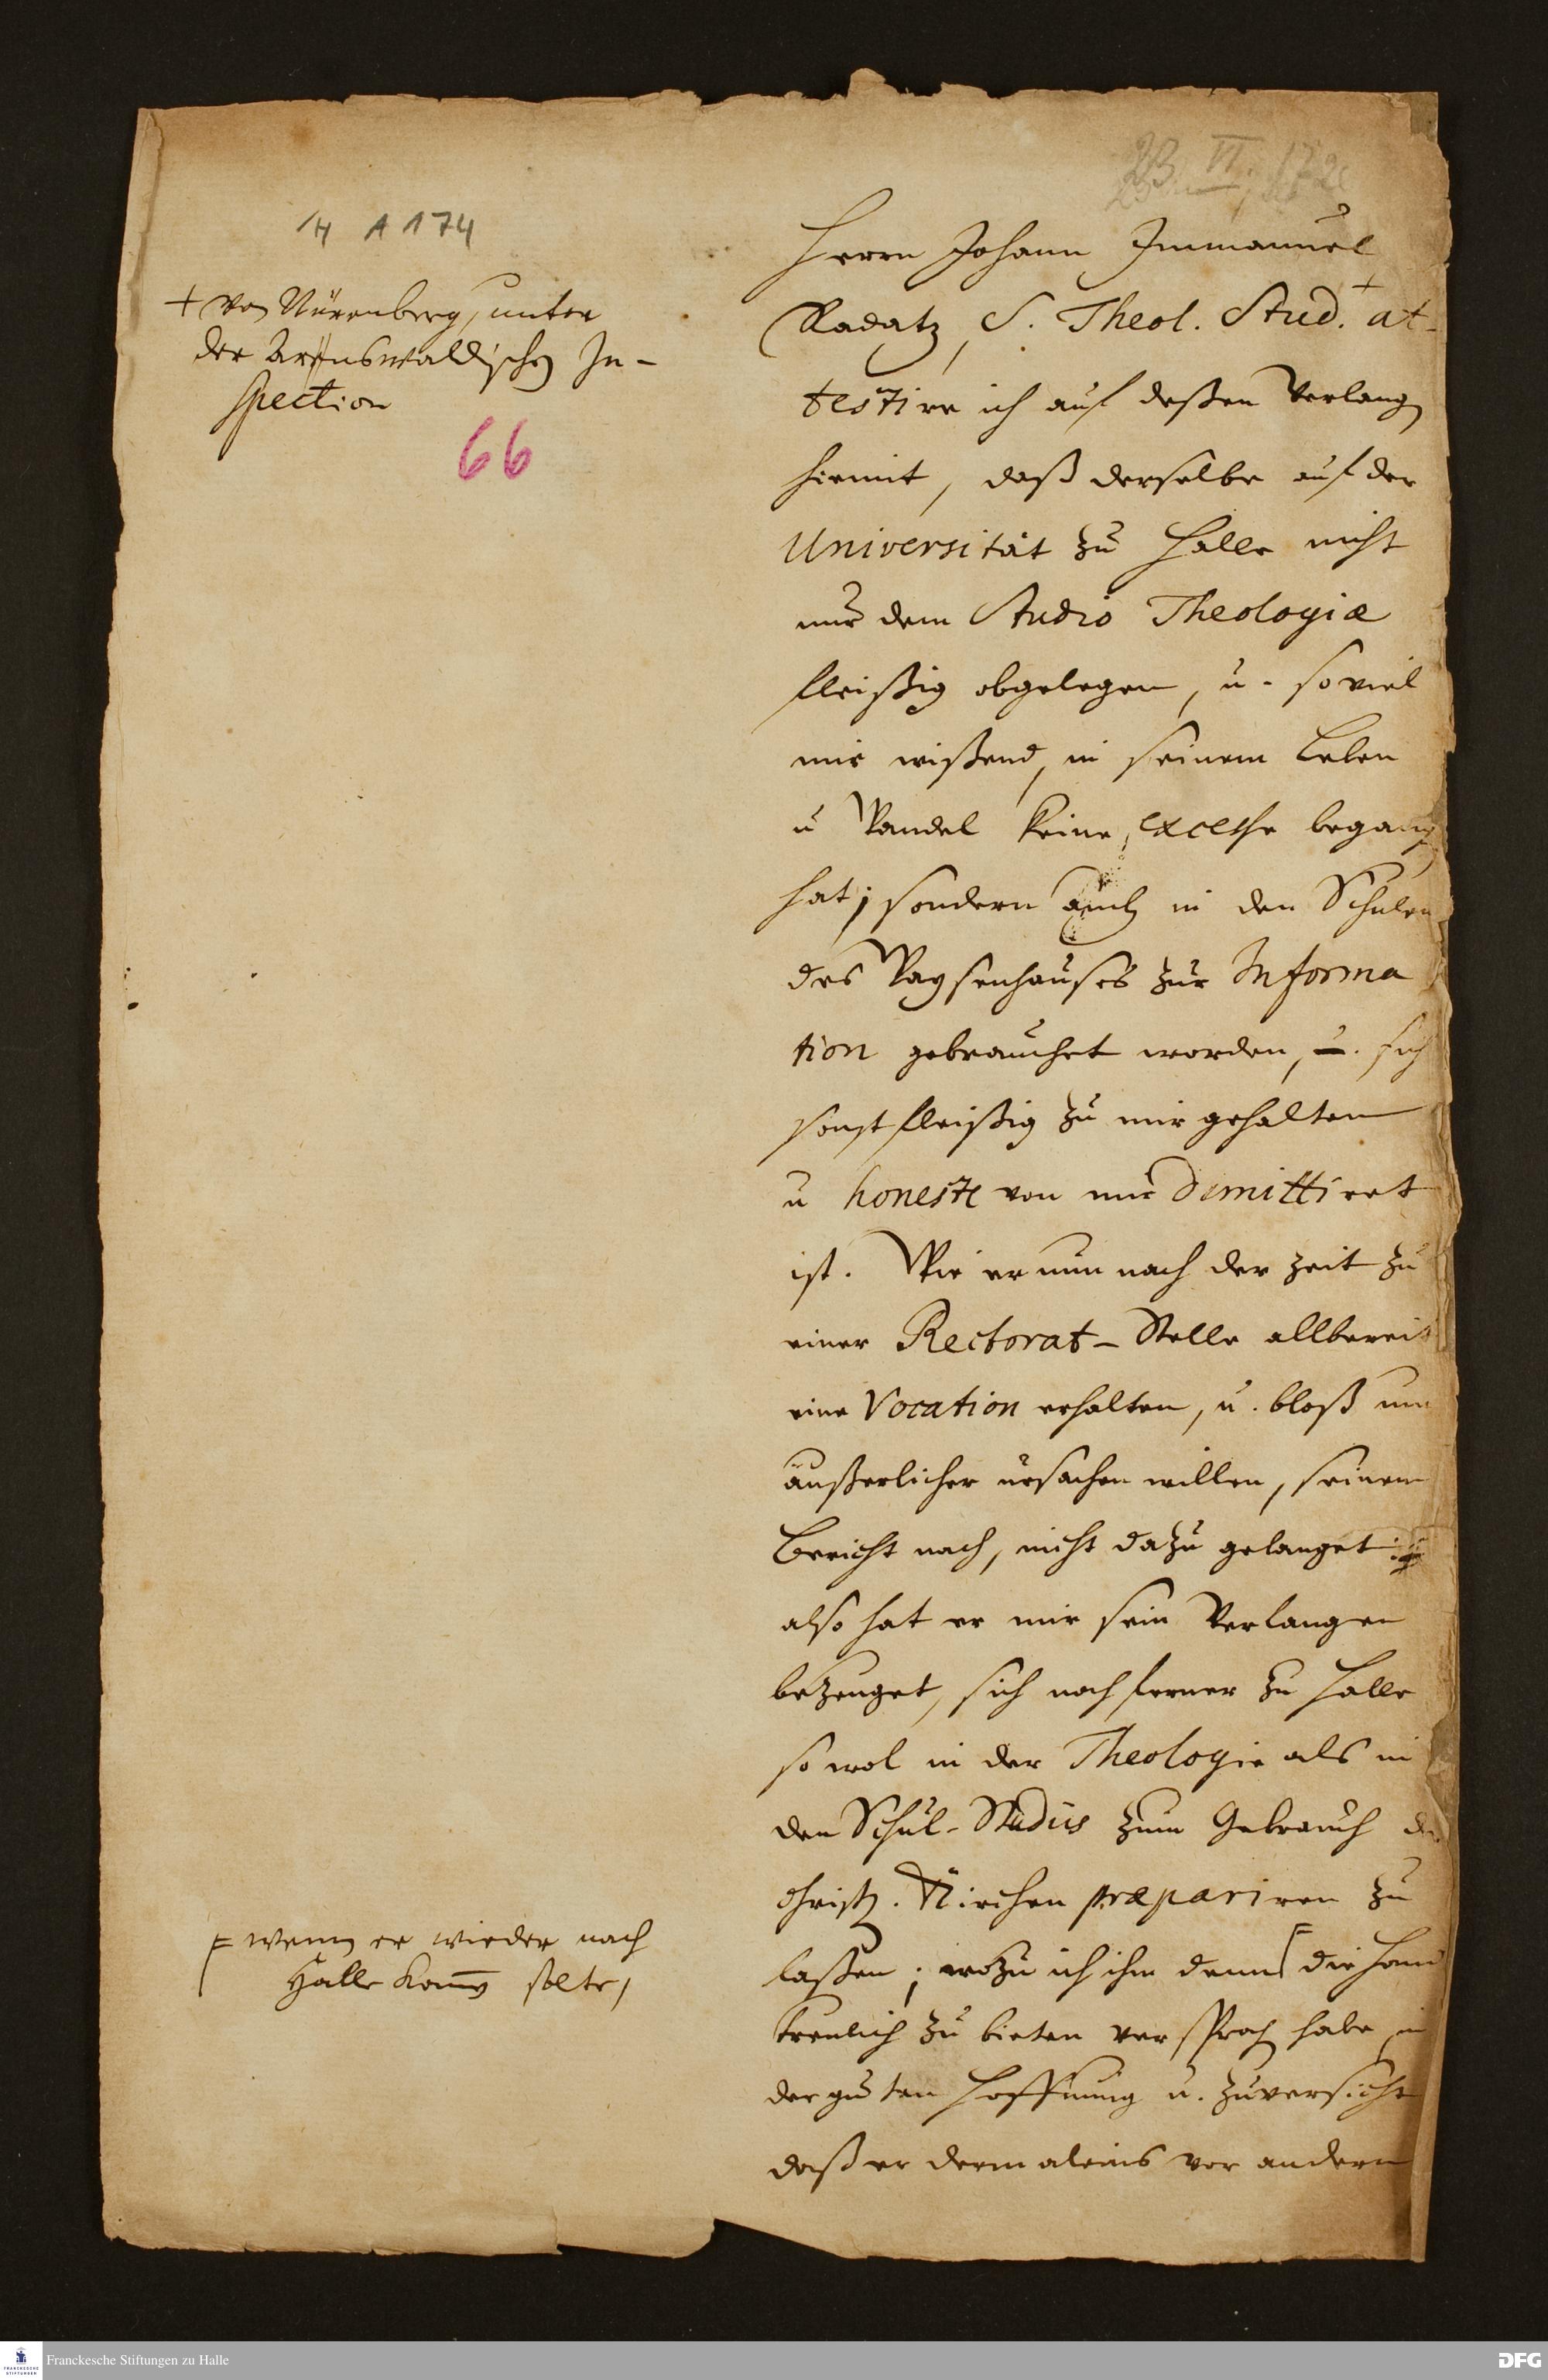 23. VI. 172
14 A 174
+ von Nürenberg, unter
der Arenswaldischen In-
spection
66
Herrn Johann Immanuel
Radatz, S. Theol. Stud.+ at-
testire ich auf deßen Verlangen
hiermit, daß derselbe auf der
Universität zu Halle nicht
nur dem Studio Theologiæ
fleißig obgelegen, u. so viel
mir wißend, in seinem Leben
u Wandel keine excesse begangen
hat; sondern auch in den Schulen
des Waysenhauses zur Informa
tion gebrauchet worden, u. sich
sonst fleißig zu mir gehalten
u honeste von mir dimittiret
ist. Wie er nun nach der Zeit zu
einer Rectorat-Stelle allbereit
eine Vocation erhalten, u. bloß um
äußerlicher ursachen willen, seinem
Bericht nach, nicht dazu gelanget:
also hat er mir sein Verlangen
bezeuget, sich noch ferner zu Halle
so wol in der Theologie als in
den Schul-Studiis zum Gebrauch der
Christl. Kirchen præpariren zu
laßen; wozu ich ihm denn ⌈ die Hand
treulich zu bieten versprochen habe in
der guten Hoffnung u. Zuversicht
daß er dermaleins vor andern
⌈ wenn er wieder nach
Halle kommen solte,
Franckesche Stiftungen zu Halle
DFG